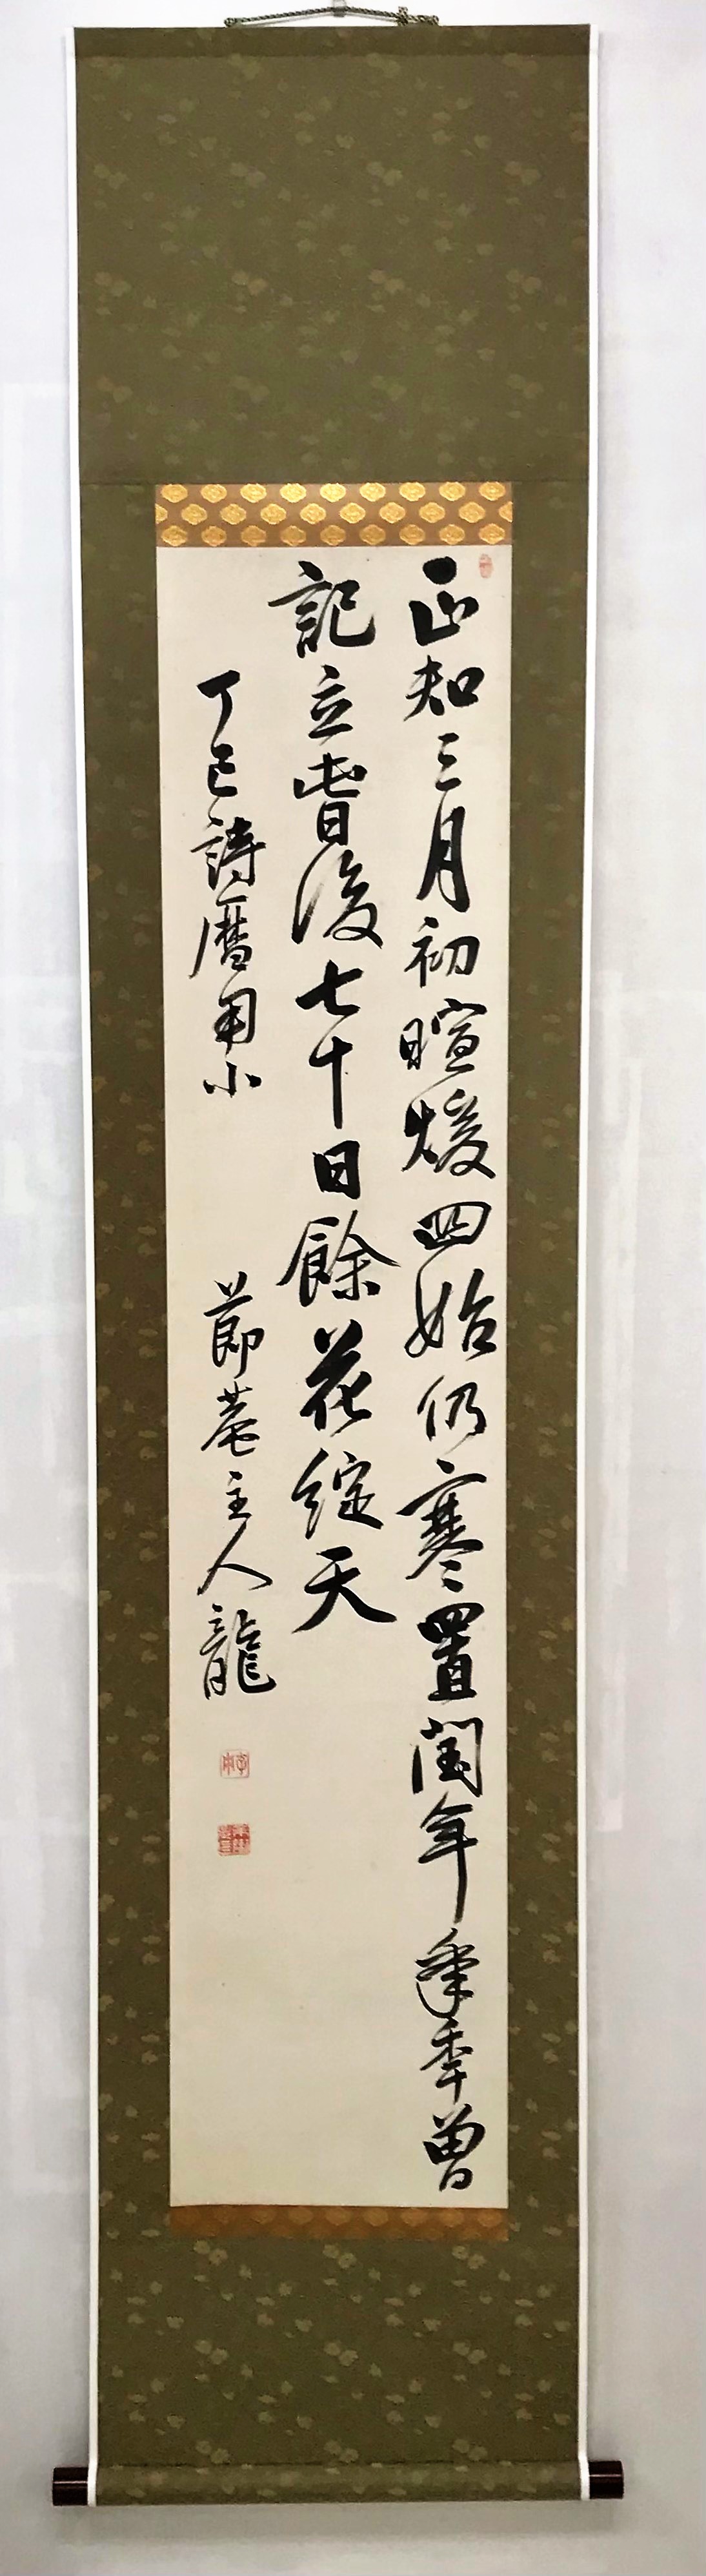 正知三月初暄煖四始仍寒置閏年季季曾
記立春後七十日餘花綻天
丁巳詩曆用小 節菴主人龍